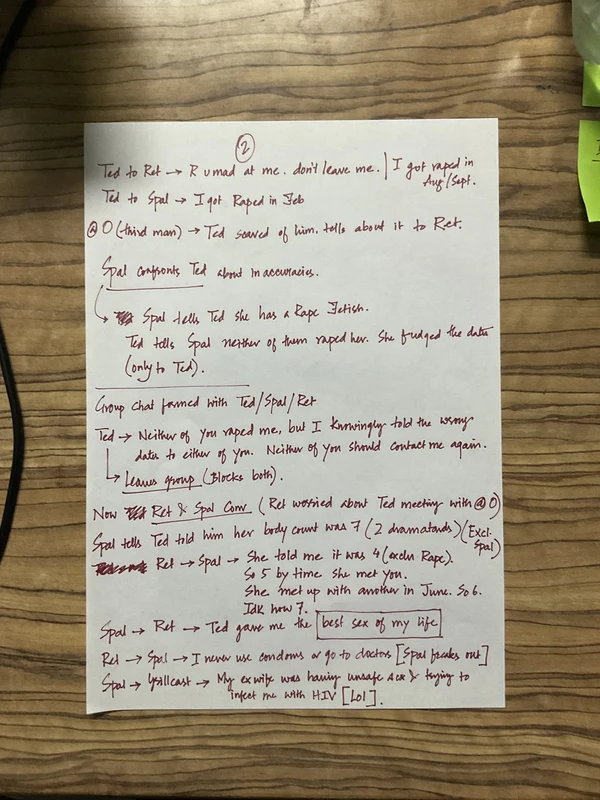 2
Ted to Ret → R u mad at me. don't leave me. | I got raped in
Aug/Sept.
Ted to Spal → I got Raped in Feb
@ O (third man) → Ted scared of him. tells about it to Ret.
Spal confronts Ted about inaccuracies.
↳ Spal tells Ted she has a Rape Fetish.
Ted tells Spal neither of them raped her. She fudged the dates
(only to Ted).
Group chat formed with Ted/Spal/Ret
Ted → Neither of you raped me, but I knowingly told the wrong
dates to either of you. Neither of you should contact me again.
↳ Leaves group (Blocks both).
Now Ret & Spal Conv (Ret worried about Ted meeting with @ O)
Spal tells Ted told him her body count was 7 (2 dramatards) (Excl.
Spal)
Ret → Spal → She told me it was 4 (exclu Rape).
So 5 by time she met you.
She met up with another in June. So 6.
Idk how 7.
Spal → Ret → Ted gave me the best sex of my life
Ret → Spal → I never use condoms or go to doctors [Spal freaks out]
Spal → → My ex wife was having unsafe & trying to
infect me with HIV [Lol].